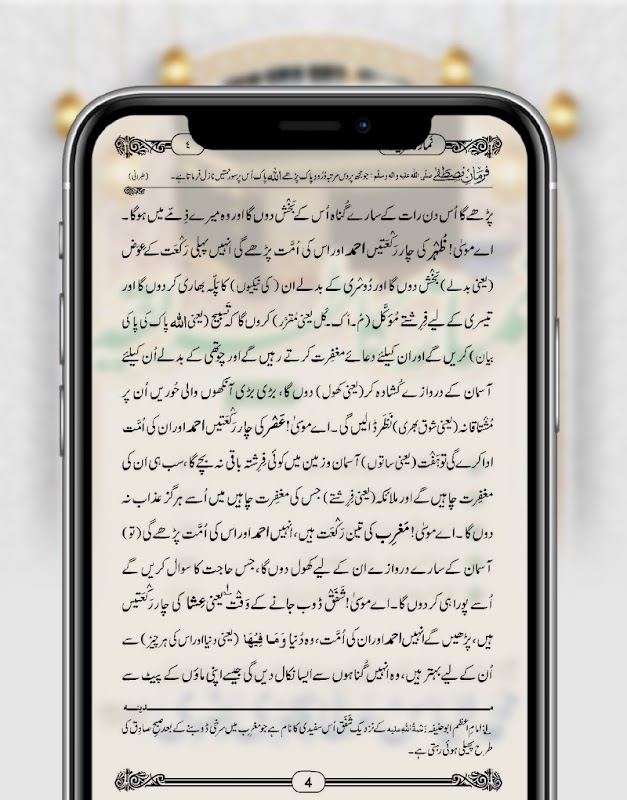 ٤
فرمانِ مصطفےٰ صلی اللہ علیہ والہ وسلم: جو مجھ پر دس مرتبہ دُرُودِ پاک پڑھے اللہ پاک اُس پر سو رحمتیں نازل فرماتا ہے۔ (طبرانی)
پڑھے گا اُس دن رات کے سارے گُناہ اُس کے بَخْش دوں گا اور وہ میرے ذِمّے میں ہوگا۔
اے موسٰی! ظُہْر کی چار رَکْعَتیں احمد اور اس کی اُمَّت پڑھے گی انہیں پہلی رَکْعَت کے عِوَض
(یعنی بدلے) بَخْش دوں گا اور دُوسْری کے بدلے ان (کی نیکیوں) کا پلّہ بھاری کر دوں گا اور
تیسری کے لیے فِرِشتے مُؤَکَّل (مُ۔اَک۔کَل یعنی مُقَرّر) کروں گا کہ تسبیح (یعنی اللہ پاک کی پاکی
بیان) کریں گے اور ان کیلئے دعائے مغفرت کرتے رہیں گے اور چوتھی کے بدلے اُن کیلئے
آسمان کے دروازے کُشادہ کر (یعنی کھول) دوں گا، بڑی بڑی آنکھوں والی حُوریں اُن پر
مُشْتاقانہ (یعنی شوق بھری) نَظَر ڈالیں گی۔ اے موسٰی! عَصْر کی چار رَکْعَتیں احمد اور ان کی اُمَّت
ادا کرے گی تو ہَفْت (یعنی ساتوں) آسمان و زمین میں کوئی فِرِشتہ باقی نہ بچے گا، سب ہی ان کی
مغفِرت چاہیں گے اور ملائکہ (یعنی فِرِشتے) جس کی مغفِرت چاہیں میں اُسے ہرگز عذاب نہ
دوں گا۔ اے موسٰی! مَغْرِب کی تین رَکْعَت ہیں، اُنہیں احمد اور اس کی اُمَّت پڑھے گی (تو)
آسمان کے سارے دروازے ان کے لیے کھول دوں گا، جس حاجت کا سوال کریں گے
اُسے پورا ہی کر دوں گا۔ اے موسٰی! شَفَق ڈوب جانے کے وَقْت یعنی عِشا کی چار رَکْعَتیں
ہیں، پڑھیں گے انہیں احمد اور ان کی اُمَّت، وہ دُنیا وَمَا فِیْھَا (یعنی دنیا اور اس کی ہر چیز) سے
اُن کے لیے بہتر ہیں، وہ انہیں گُناہوں سے ایسا نکال دیں گی جیسے اپنی ماؤں کے پیٹ سے
امامِ اعظم ابو حنیفہ رَحْمَةُ اللہِ علیہ کے نزدیک شَفَق اُس سفیدی کا نام ہے جو مغرب میں سرخی ڈوبنے کے بعد صبحِ صادِق کی
طرح پھیلی ہوئی رہتی ہے۔
4